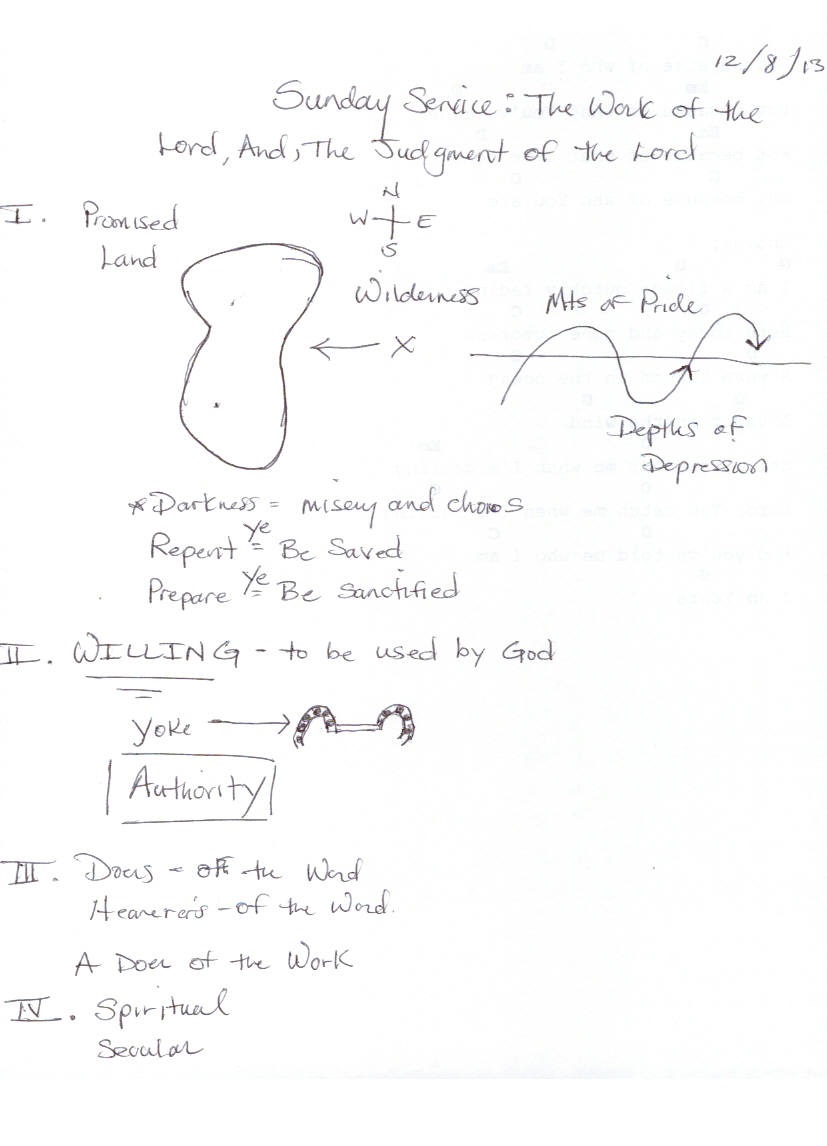 12/8/13
Sunday Service: The Work of the
Lord, And, The Judgment of the Lord
I. Promised
Land
N
W E
S
Wilderness
X
Mts of Pride
Depths of
Depression
* Darkness = misery and
Repent Ye = Be Saved
Prepare Ye = Be Sanctified
II. WILLING - to be used by God
Yoke
Authority
III. Doers - of the Word
Hearerers - of the Word.
A Doer of the Work
IV. Spiritual
Secular